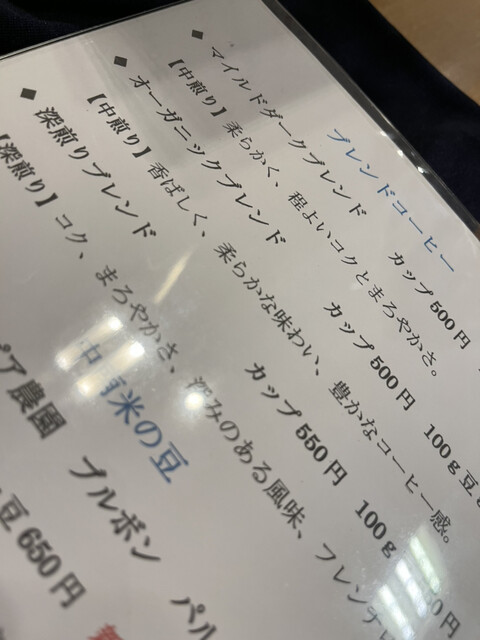 ブレンドコーヒー
◆マイルドダークブレンド カップ500円
【中煎り】柔らかく、程よいコクとまろやかさ。
◆オーガニックブレンド カップ500円 100g豆
【中煎り】香ばしく、柔らかな味わい、豊かなコーヒー感。
◆深煎りブレンド カップ550円 100g
【深煎り】コク、まろやかさ、深みのある風味、フレンチロ
中南米の豆
ピア農園 ブルボン パル
豆650円